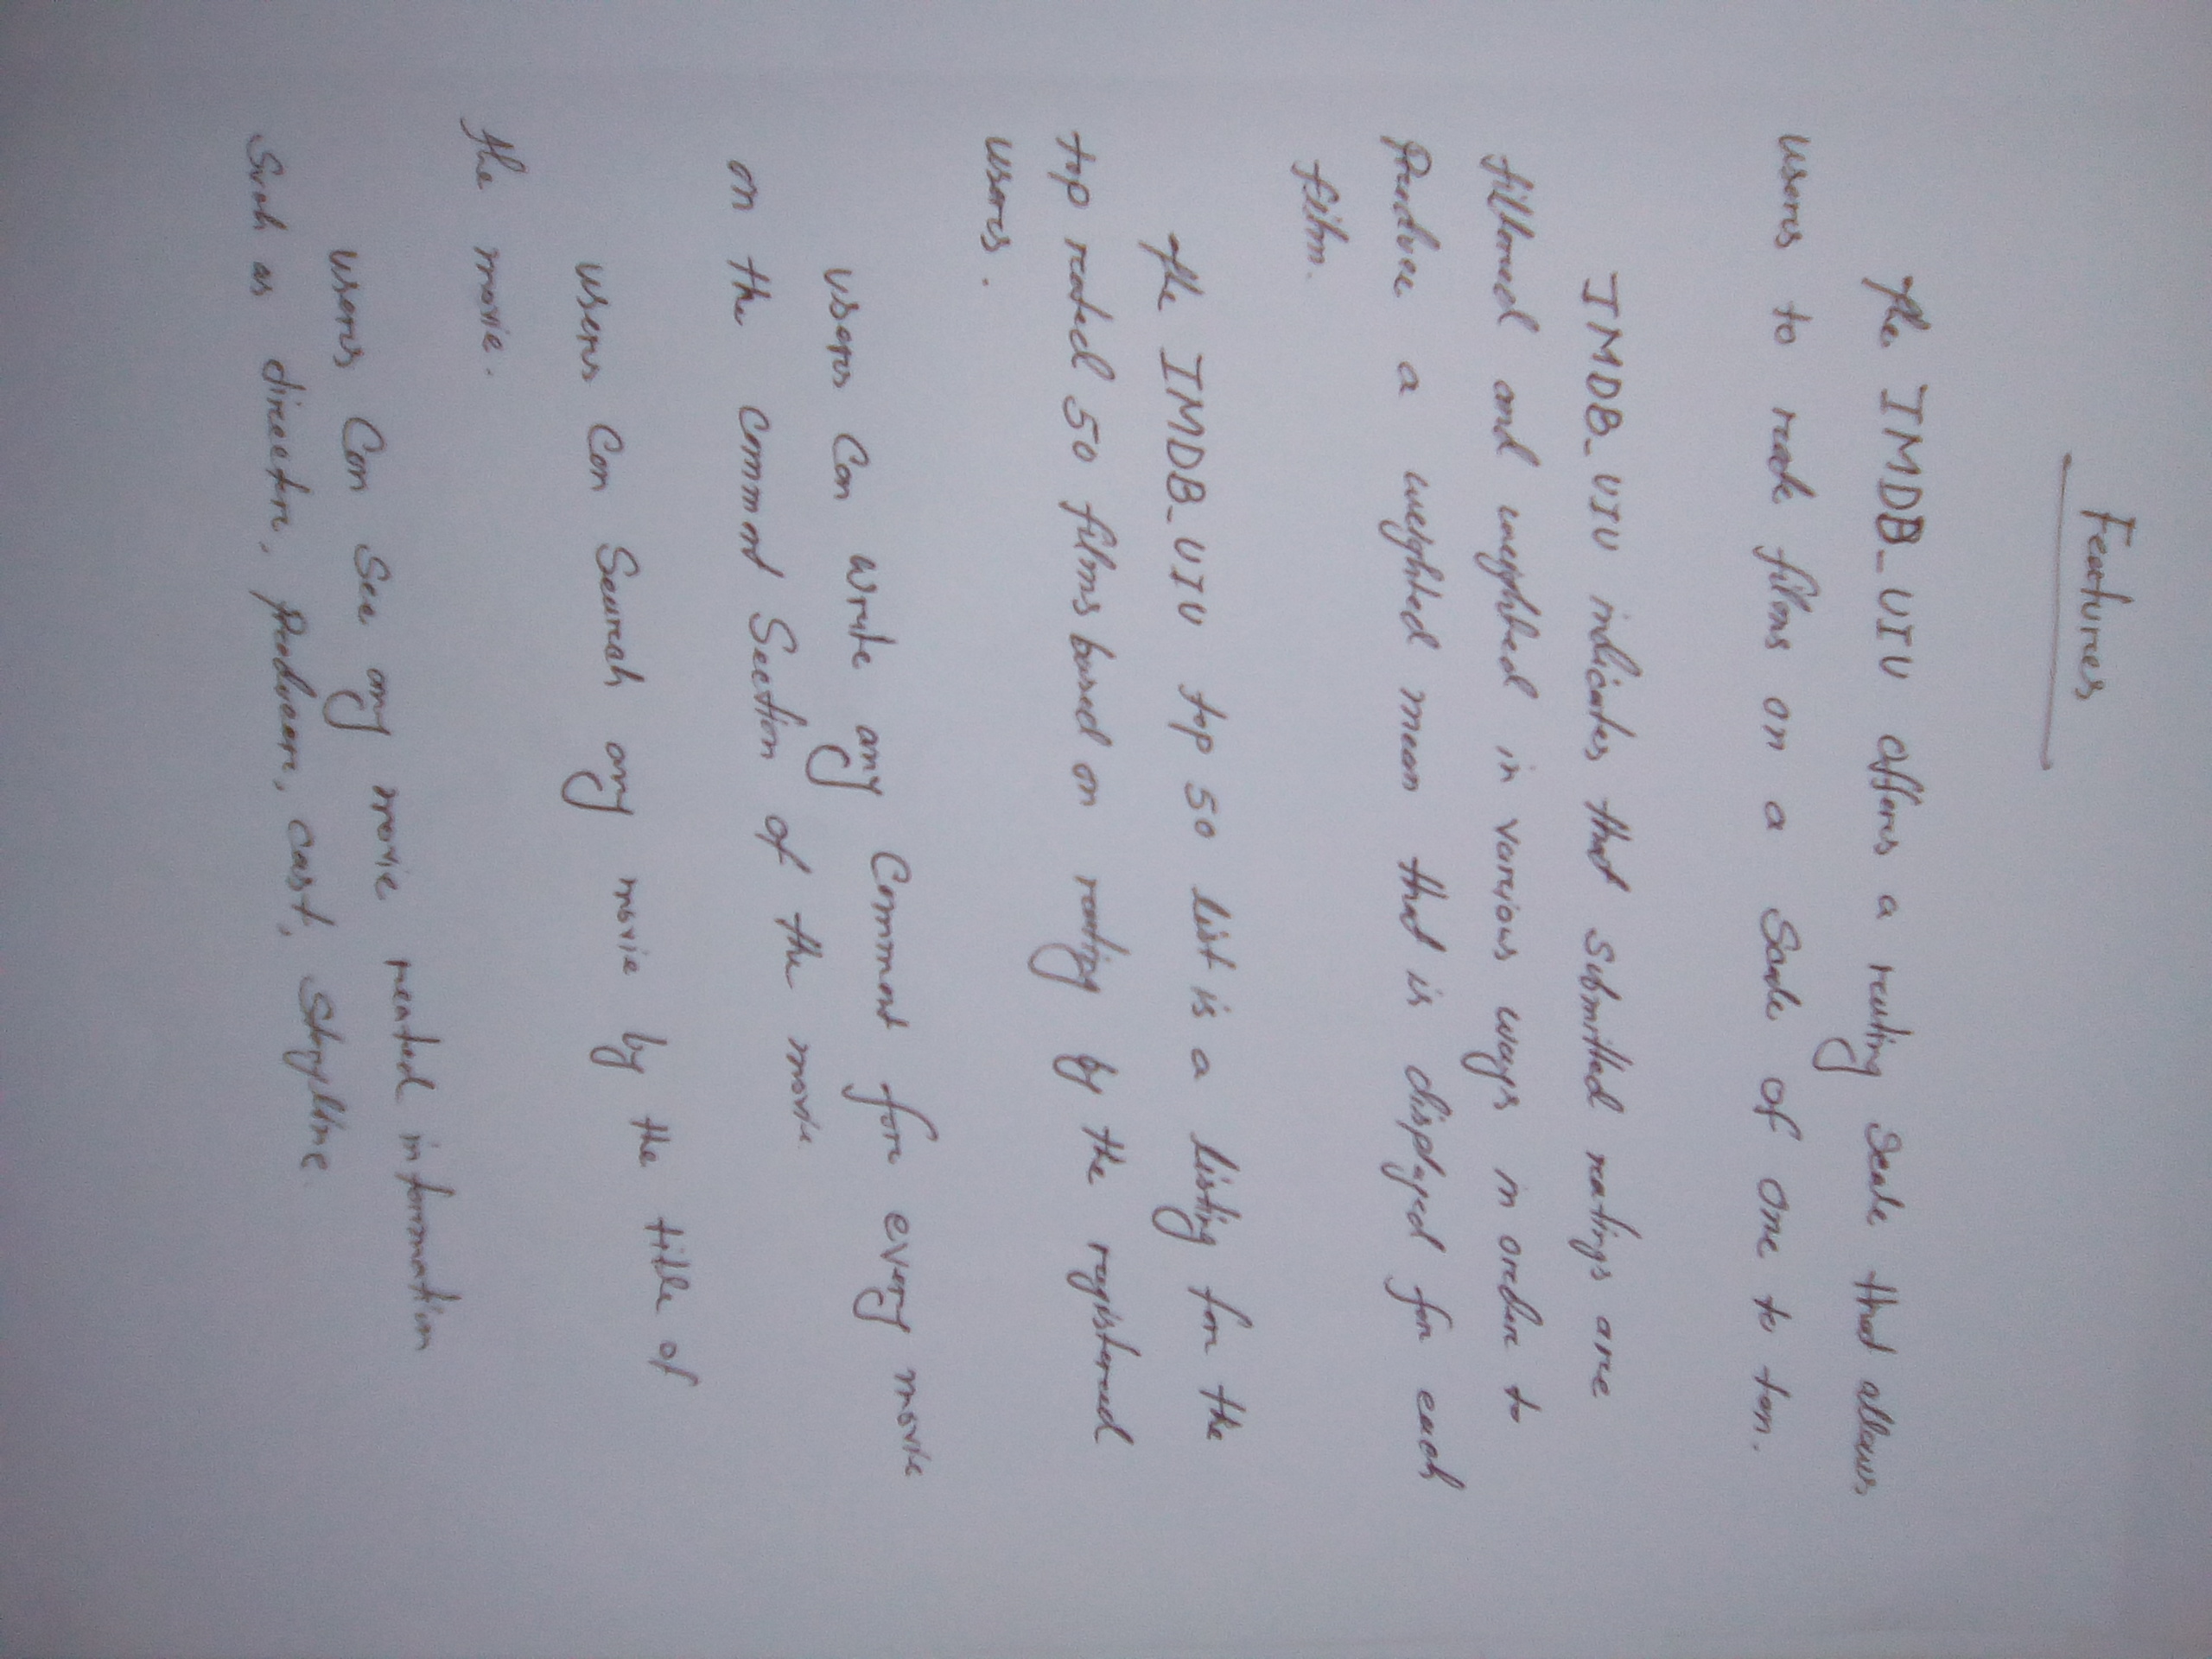 Features
The IMDB_UIU offers a rating scale that allows
users to rate films on a scale of one to ten.
IMDB_UIU indicates that submitted ratings are
filtered and weighted in various ways in order to
produce a weighted mean that is displayed for each
film.
The IMDB_UIU top 50 list is a listing for the
top rated 50 films based on rating by the registered
users.
users can write any comment for every movie
on the comment section of the movie.
users can search any movie by the title of
the movie.
users can see any movie reated information
such as director, producer, cast, storyline